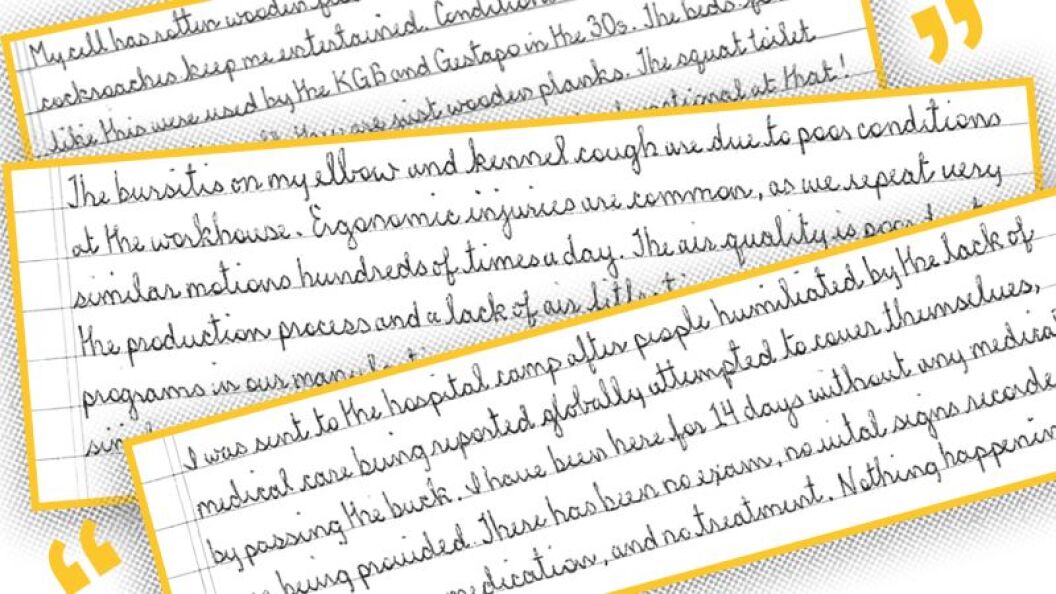 My cell has rotten wooden
cockroaches keep me entertained. Conditions
like this were used by the KGB and Gestapo in the 30s. The beds
they are just wooden planks. The squat toilet
at that!
The bursitis on my elbow and kennel cough are due to poor conditions
at the workhouse. Ergonomic injuries are common, as we repeat very
similar motions hundreds of times a day. The air quality is poor
the production process and a lack of air
programs in our
I was sent to the hospital camp after people humiliated by the lack of
medical care being reported globally attempted to cover themselves,
by passing the buck. I have been here for 14 days without any medical
being provided. There has been no exam, no vital signs recorded
medication, and no treatment. Nothing happening